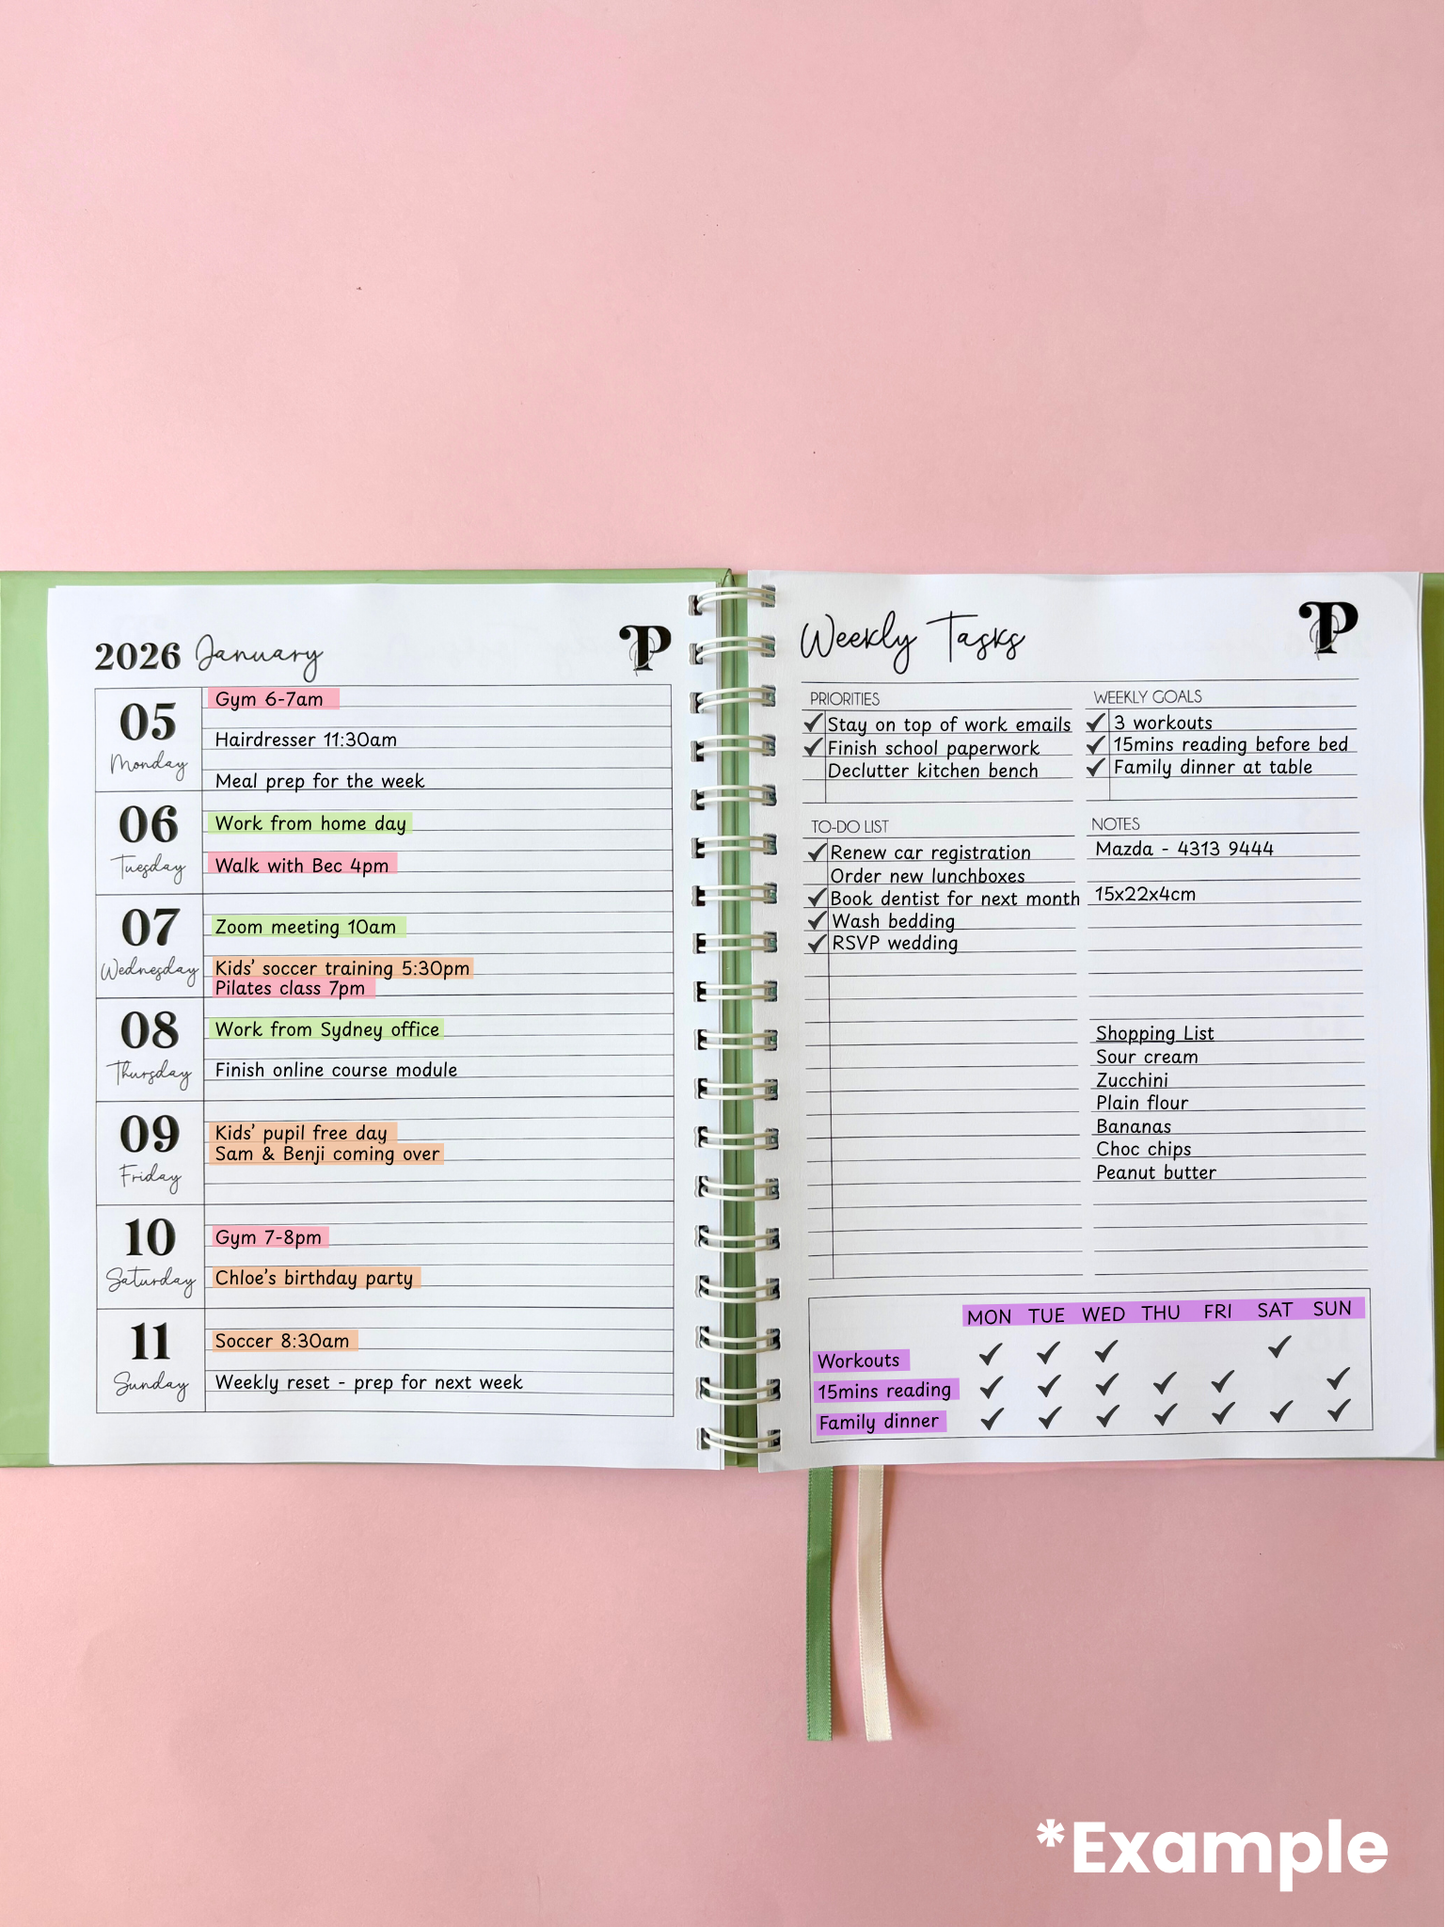 2026 January
P
05
Monday
Gym 6-7am
Hairdresser 11:30am
Meal prep for the week
06
Tuesday
Work from home day
Walk with Bec 4pm
07
Wednesday
Zoom meeting 10am
Kids' soccer training 5:30pm
Pilates class 7pm
08
Thursday
Work from Sydney office
Finish online course module
09
Friday
Kids' pupil free day
Sam & Benji coming over
10
Saturday
Gym 7-8pm
Chloe's birthday party
11
Sunday
Soccer 8:30am
Weekly reset - prep for next week
Weekly Tasks
P
PRIORITIES
✓ Stay on top of work emails
✓ Finish school paperwork
Declutter kitchen bench
WEEKLY GOALS
✓ 3 workouts
✓ 15mins reading before bed
✓ Family dinner at table
TO-DO LIST
✓ Renew car registration
Order new lunchboxes
✓ Book dentist for next month
✓ Wash bedding
✓ RSVP wedding
NOTES
Mazda - 4313 9444
15x22x4cm
Shopping List
Sour cream
Zucchini
Plain flour
Bananas
Choc chips
Peanut butter
MON TUE WED THU FRI SAT SUN
Workouts ✓ ✓ ✓ ✓
15mins reading ✓ ✓ ✓ ✓ ✓ ✓
Family dinner ✓ ✓ ✓ ✓ ✓ ✓ ✓
*Example